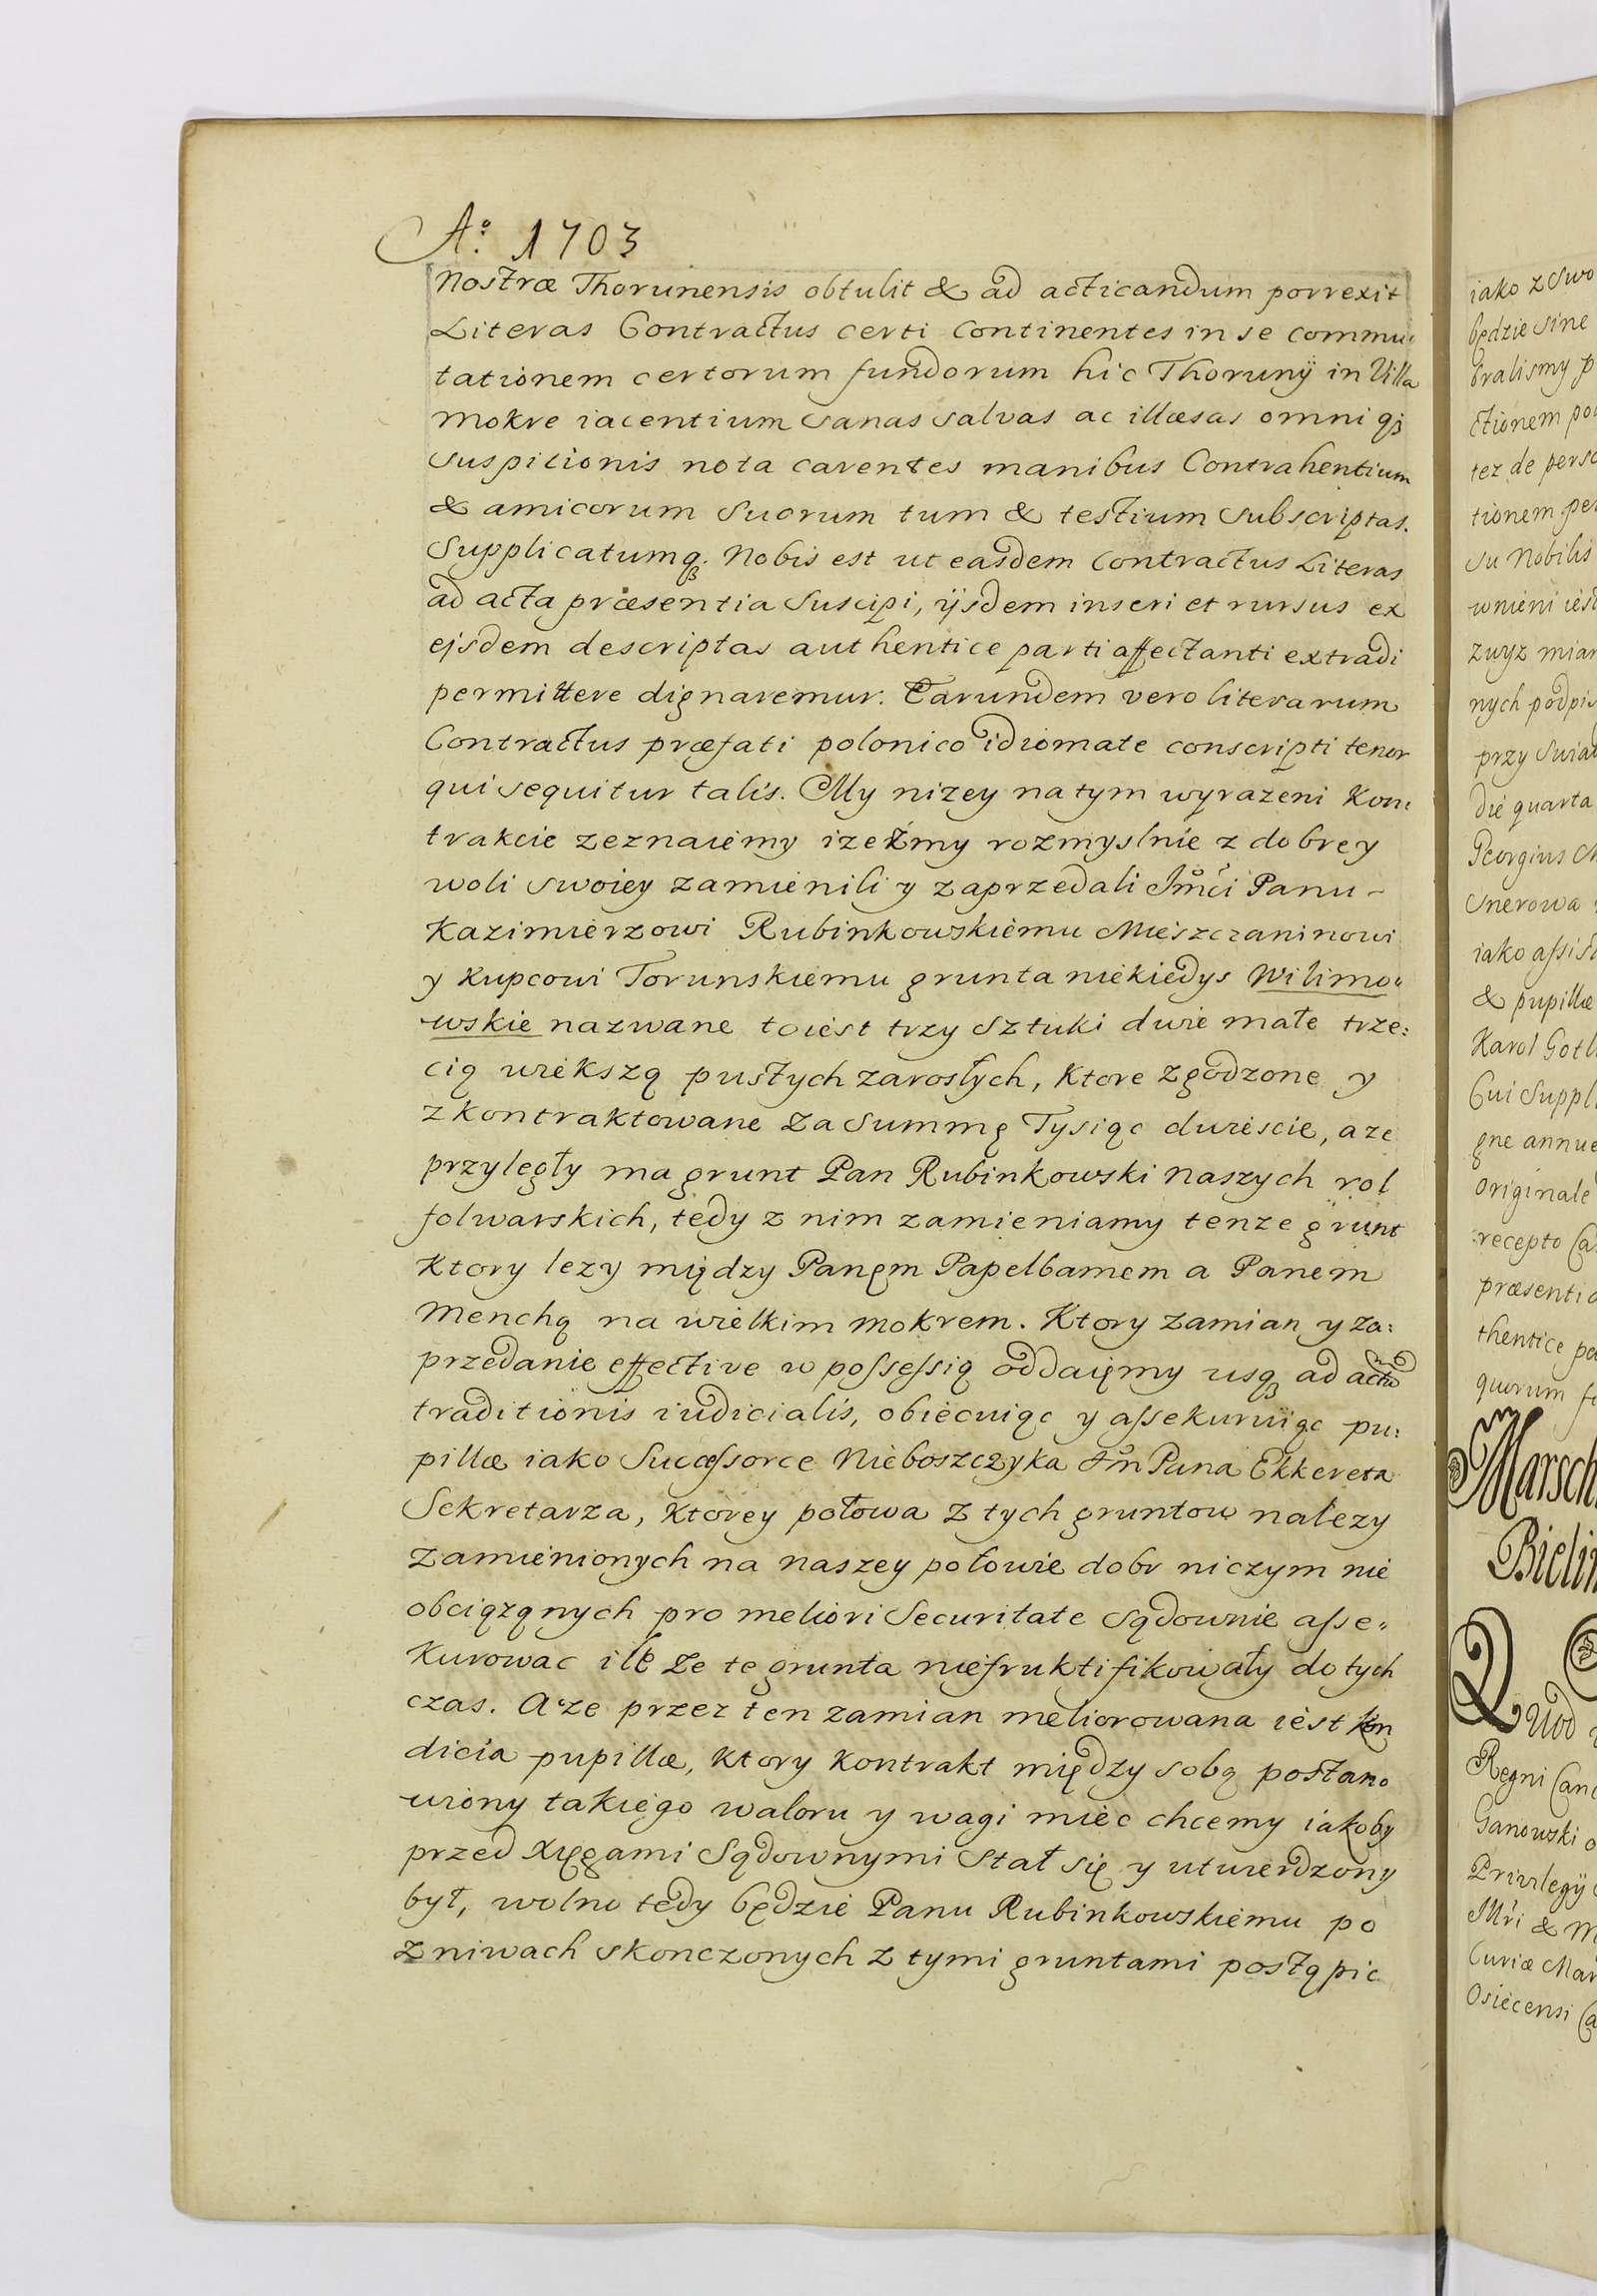 Aº. 1703
Nostræ Thorunensis obtulit & ad acticandum porrexit
Literas Contractus certi Continentes in se commu:
tationem certorum fundorum hic Thorunÿ in Villa
Mokre iacentium sanas salvas ac illæsas omniqȝ
Suspitionis nota carentes manibus Contrahentium
& amicorum Suorum tum & testium Subscriptas.
Supplicatumqȝ Nobis est ut easdem Contractus Literas
ad acta præsentia Suscipi, ÿsdem inseri et rursus ex
ejsdem descriptas authentice parti affectanti extradi
permittere dignaremur. Earundem vero literarum
Contractus præfati polonico idiomate conscripti tenor
qui sequitur talis. My nizey na tym wyrazeni Kon:
trakcie zeznaiemy izeźmy rozmyslnie z dobrey
woli swoiey zamienili y zaprzedali Jmći Panu -
Kazimierzowi Rubinkowskiemu Mieszczaninowi
y Kupcowi Torunskiemu grunta niekiedys Wilimo:
wskie nazwane toiest trzy sztuki dwie małe trze:
cią większą pustych zarosłych, Ktore zgodzone y
zkontraktowane za Summę Tysiąc dwiescie, aze
przyległy ma grunt Pan Rubinkowski Naszych rol
folwarskich, tedy z nim zamieniamy tenze grunt
Ktory lezy między Panęm Papelbamem a Panem
Menchą na wielkim Mokrem. Ktory zamian y za:
przedanie effective w possessią oddaięmy usqȝ ad actū
traditionis iudicialis, obiecuiąc y assekuruiąc pu:
pillæ iako Sucessorce Nieboszczyka Jm̃ Pana Ekkereta
Sekretarza, Ktorey połowa z tych gruntow nalezy
Zamienionych na naszey połowie dobr niczym nie
obciązanych pro meliori Securitate Sądownie asse:
Kurowac ile ze te grunta niefruktifikowały do tych
czas. A ze przez ten zamian meliorowana iest kon
dicia pupillæ, Ktory Kontrakt między sobą postano
wiony takiego waloru y wagi miec chcemy iakoby
przed Xięgami Sądownymi Stał się y utwierdzony
był, wolno tedy będzie Panu Rubinkowskiemu po
Zniwach skonczonych z tymi gruntami postąpic
iako z swo
będzie sine
bralismy p
ctionem po
tez de perso
tionem per
su Nobilis
wnieni iest
zwyz mian
nych podpis
przy Swiad
die quarta
Georgius M
snerowa
iako assist
& pupillæ
Karol Gotl
Cui Suppl
gne annue
originale
recepto Ca
præsentia
thentice pa
quorum fi
Marsch
Bielin
Quod
Regni Canc
Ganowski o
Privilegÿ
Illri & M
Curiæ Mar
Osiecensi Ca